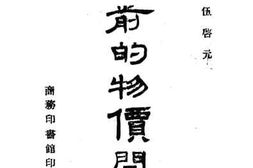 伍啓元
前的物價
商務印書館印